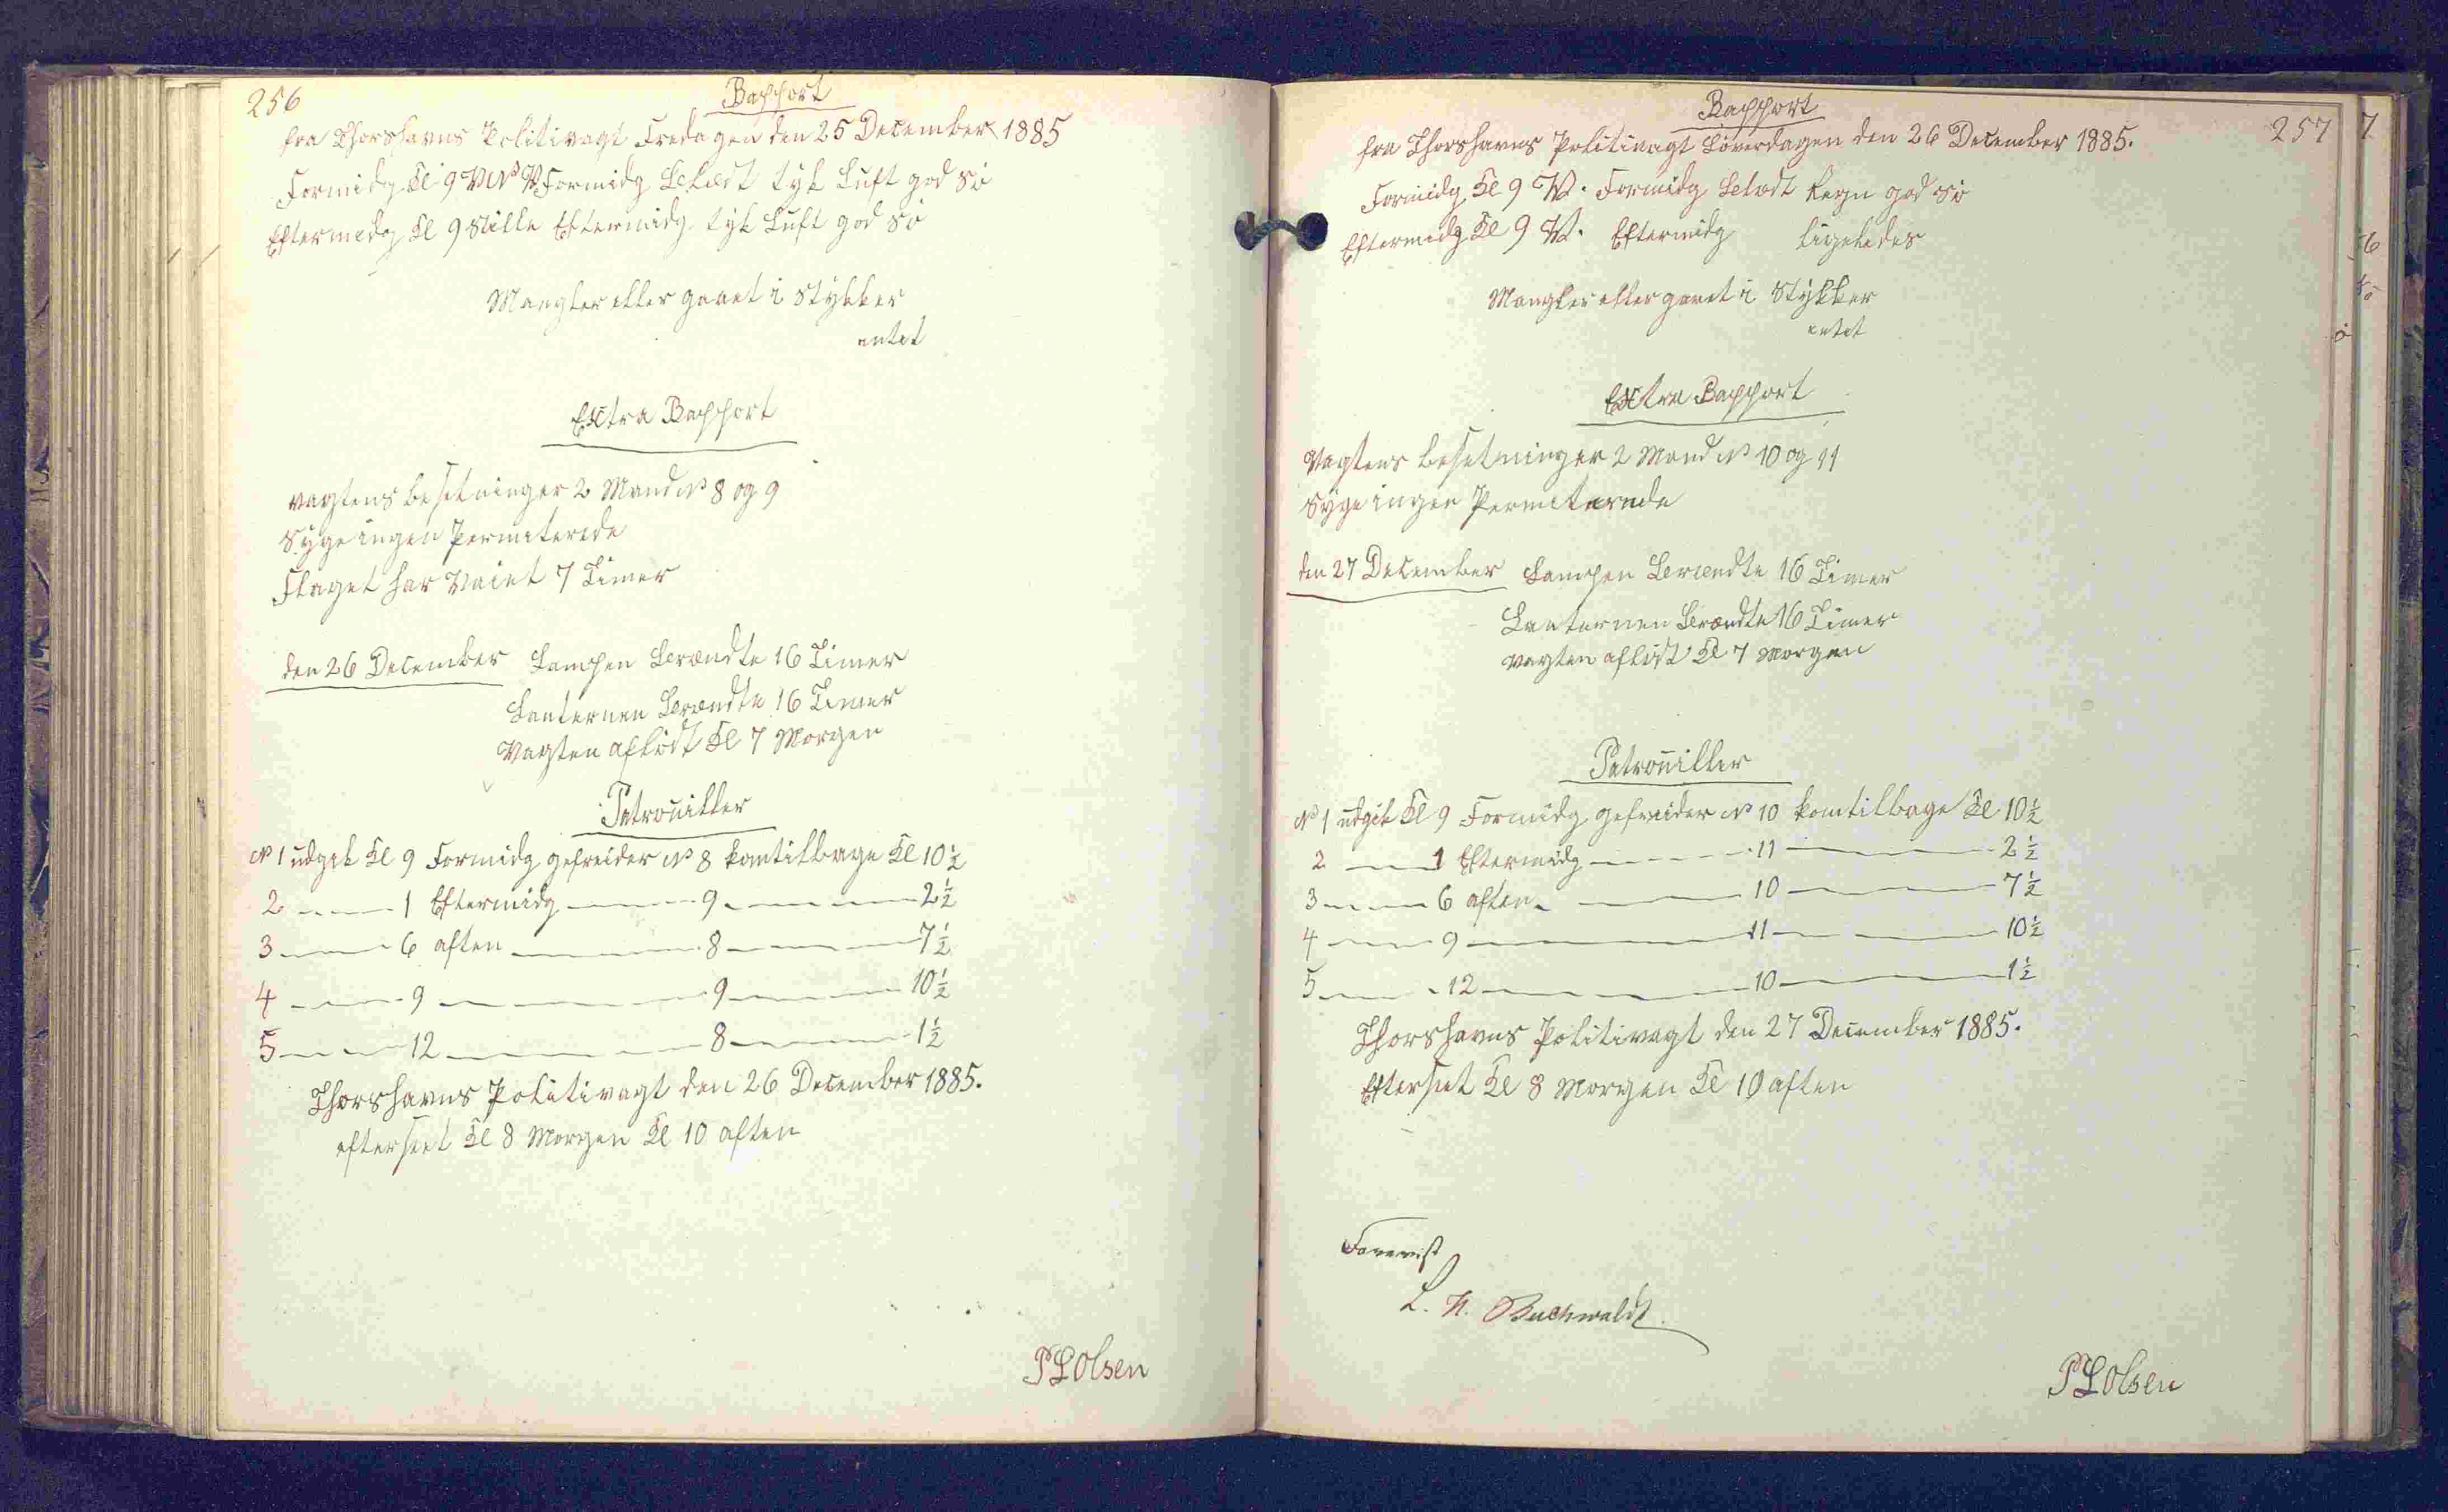 256
Rapport
fra Thorshavns Politivagt Fredagen den 25 December 1885
Formidg Kl 9 VNV Formidg Skædt tyk Luft god Sö
Eftermedg Kl 9 Stille Eftermidg tyk Luft god Sö
Mangler eller gaaet i Stykker
entet
Extra Rapport
vagtens besetninger 2 Mand No 8 og 9
Syge ingen Permeterede
Flaget har Vaiet 7 Timer
den 26 December Lampen Brændte 16 Timer
Lanternen Brændte 16 Timer
Vagten aflöst Kl 7 Morgen
Patrouiller
No 1 udgik Kl 9 Formidg gefreider No 8 kom tilbage Kl 10½
2 — 1 Eftermidg — 9 — 2½
3 — 6 aften — 8 — 7½
4 — 9 — 9 — 10½
5 — 12 — 8 — 1½
Thorshavns Politivagt den 26 December 1885.
efterseet Kl 8 Morgen Kl 10 aften
PLOlsen
257
Rapport
fra Thorshavns Politivagt Löverdagen den 26 December 1885.
Formidg Kl 9 V. Formidg regn god Sö
Eftermidg Kl 9 V. Eftermidg ligeledes
Mangler eller gaaet i Stykker
entet
Extra Rapport
Vagtens besetninger 2 Mand No 10 og 11
Syge ingen Permeterede
den 27 December Lampen Brændte 16 Timer
Lanternen Brændte 16 Timer
vagten aflöst Kl 7 Morgen
Patrouiller
No 1 udgik Kl 9 Formidg gefreider No 10 kom tilbage Kl 10½
2 — 1 Eftermidg — 11 — 2½
3 — 6 aften — 10 — 7½
4 — 9 — 11 — 10½
5 — 12 — 10 — 1½
Thorshavns Politivagt den 27 December 1885.
Efterseet Kl 8 Morgen Kl 10 aften
Forevist
L. H. Buchwaldt
PLOlsen